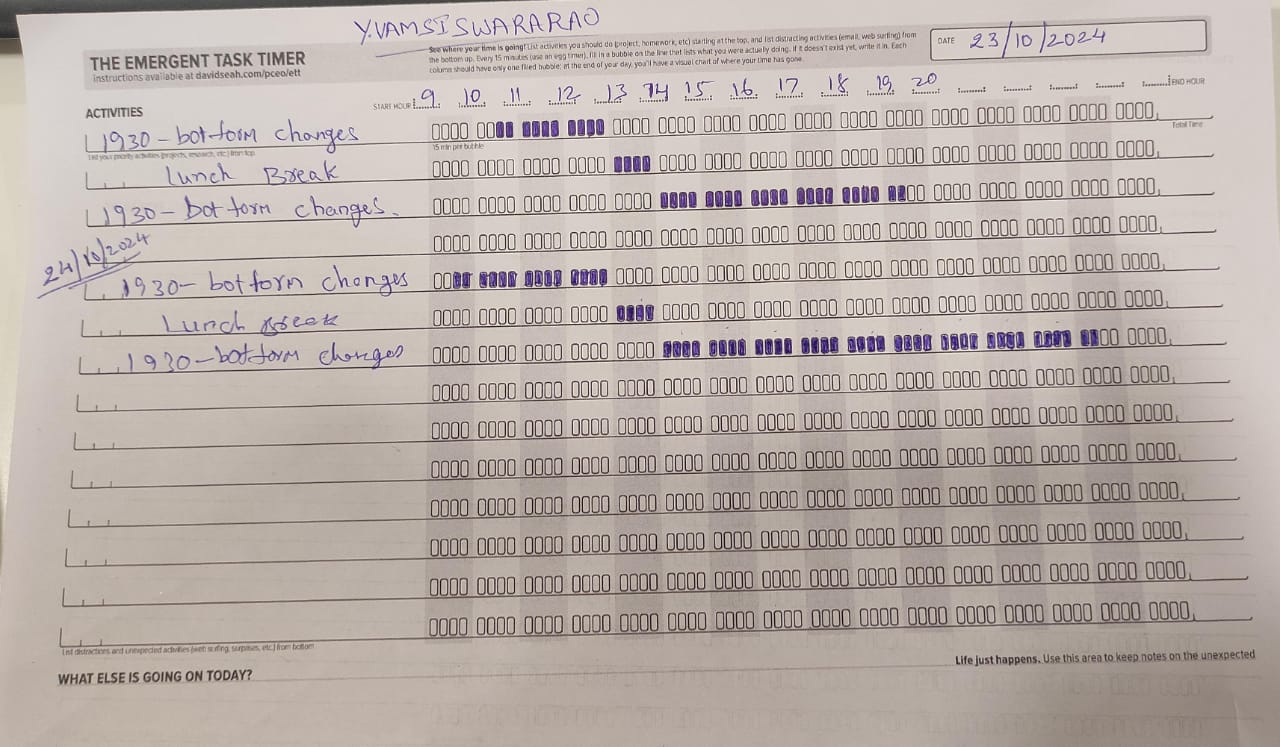 Y.VAMSI SWARARAO
THE EMERGENT TASK TIMER
instructions available at davidseah.com/pceo/ett
See where your time is going! List activities you should do (project, homework, etc) starting at the top, and list distracting activities (email, web surfing) from
the bottom up. Every 15 minutes (use an egg timer), fill in a bubble on the line that lists what you were actually doing. If it doesn't exist yet, write it in. Each
column should have only one filled bubble; at the end of your day, you'll have a visual chart of where your time has gone.
DATE 23/10/2024
ACTIVITIES
START HOUR 9 10 11 12 13 14 15 16 17 18 19 20 END HOUR
1930-bot form changes
List your priority activities (projects, research, etc.) from top
15 min per bubble
Total Time
Lunch Break
1930-bot form changes.
24/10/2024
1930-bot form changes
Lunch Break
1930-bot form changes
List distractions and unexpected activities (web surfing, surprises, etc.) from bottom
WHAT ELSE IS GOING ON TODAY?
Life just happens. Use this area to keep notes on the unexpected